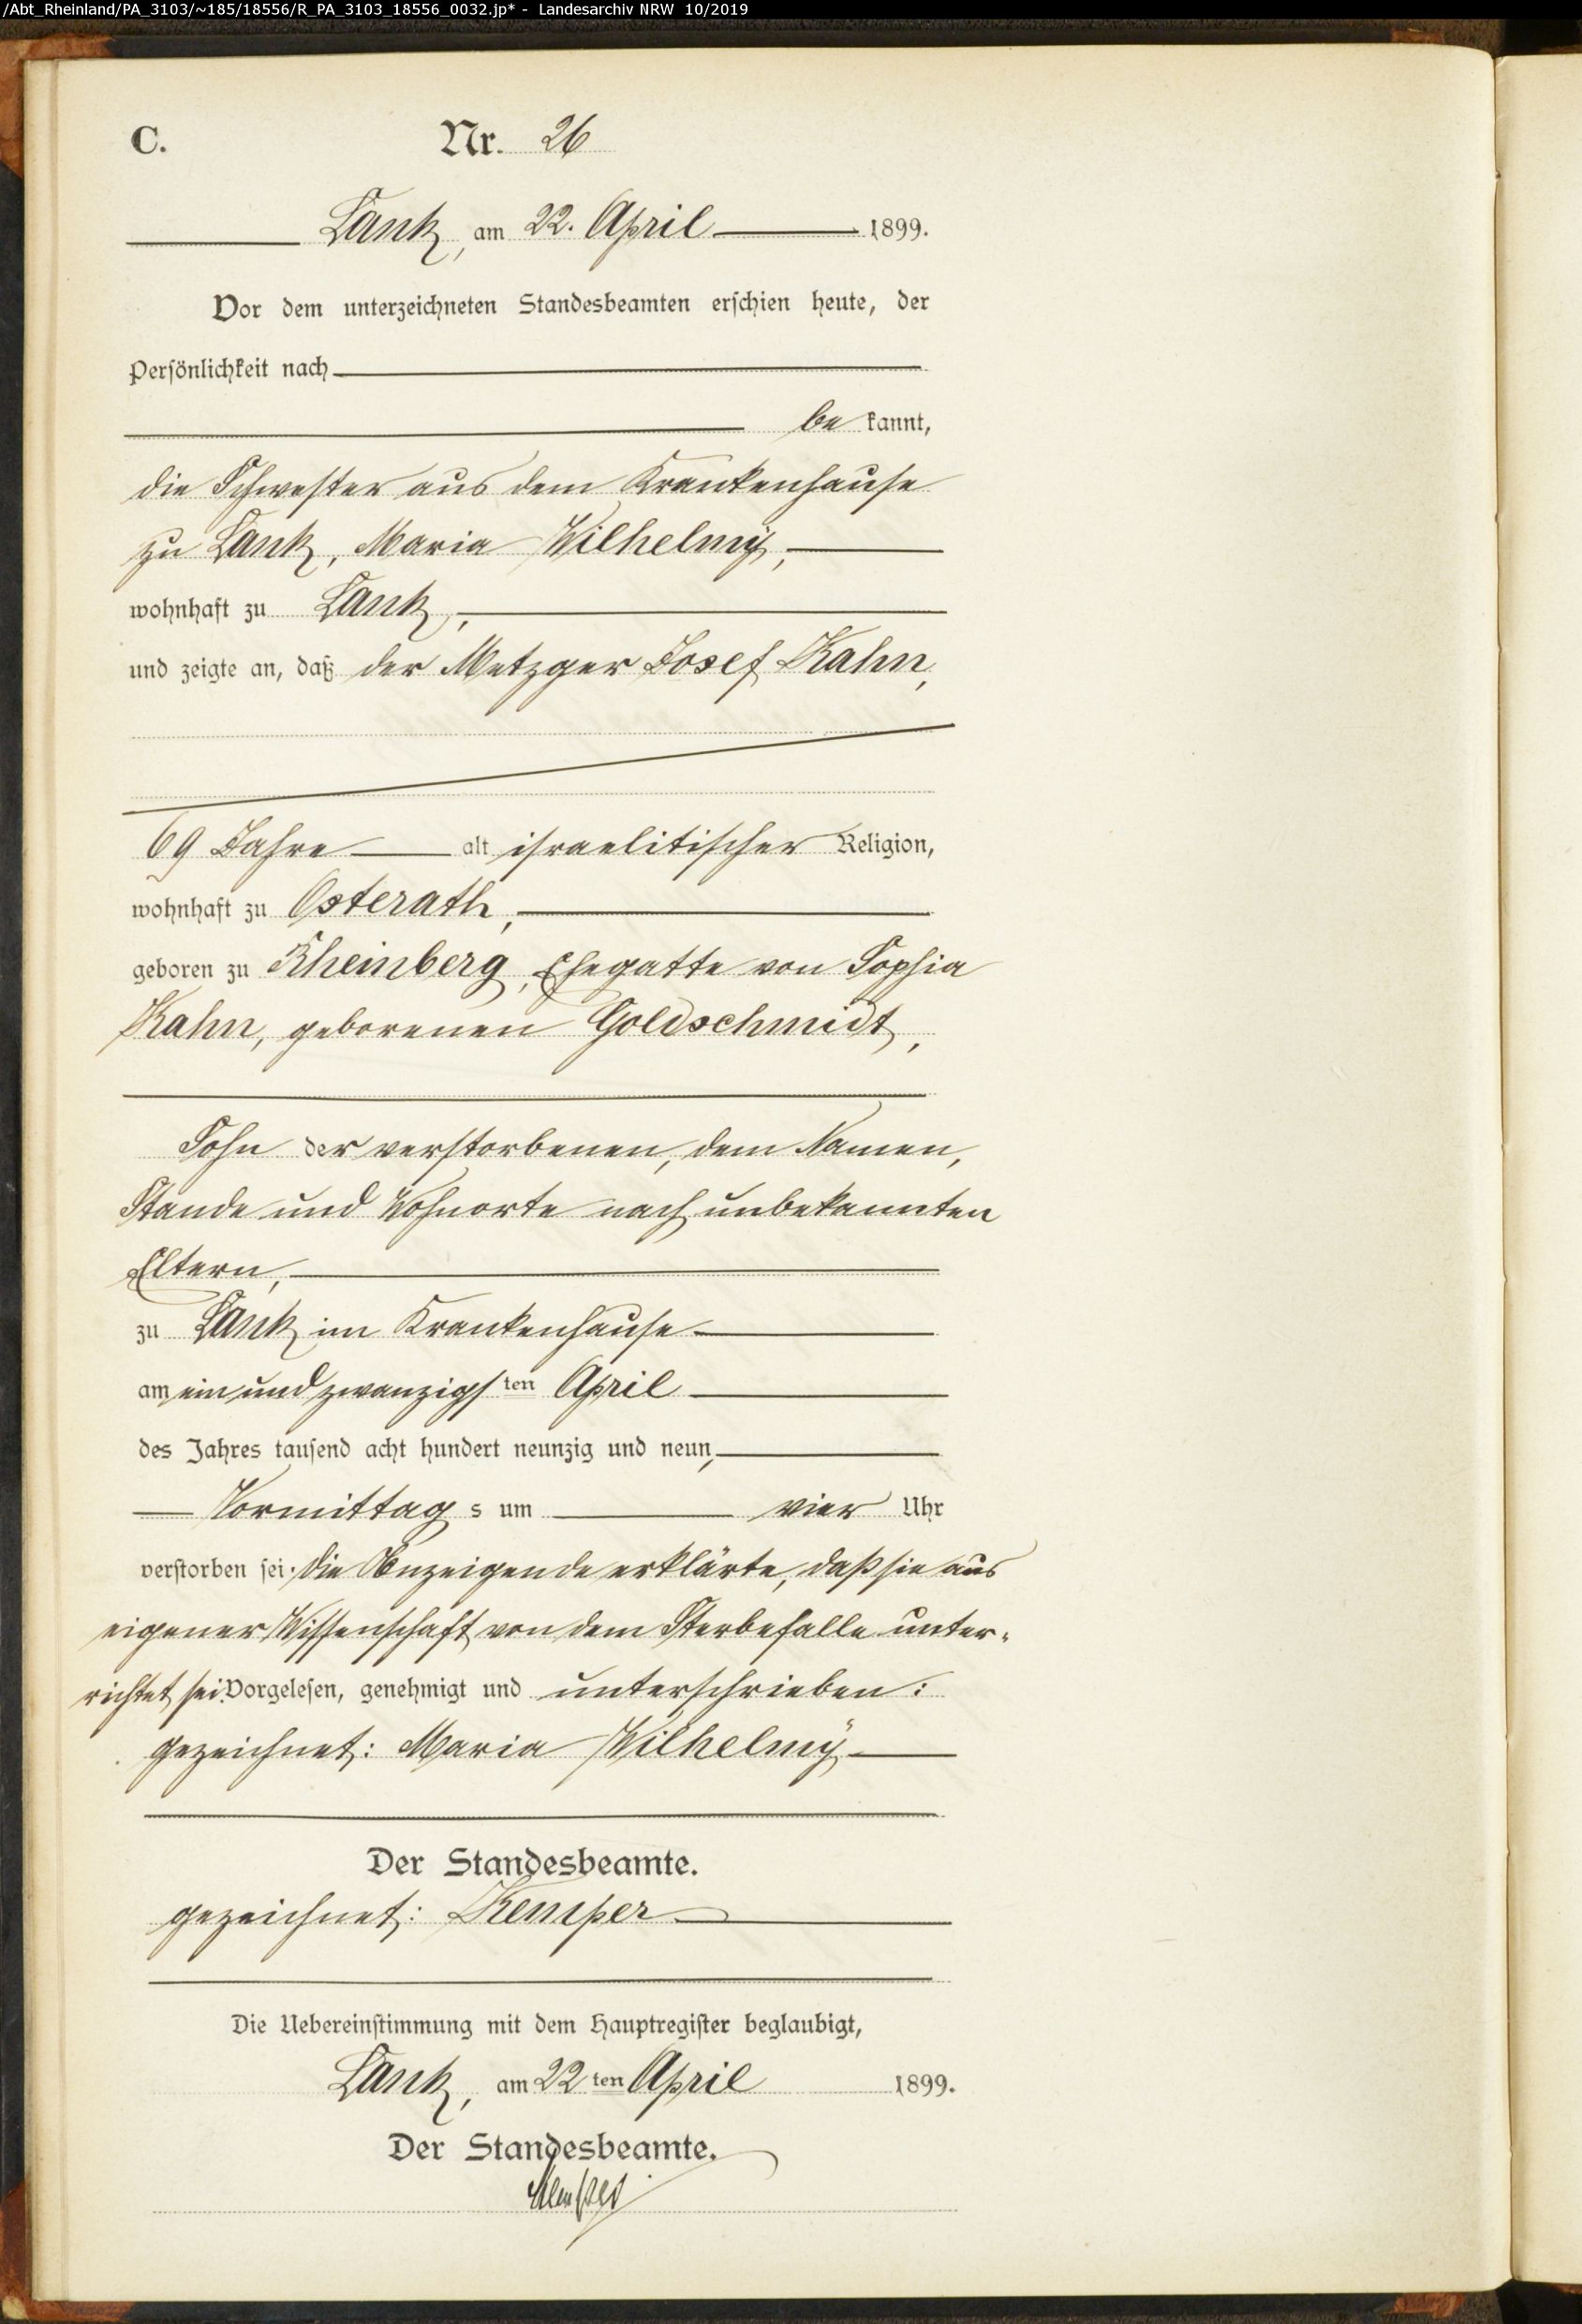 /Abt_Rheinland/PA_3103/~185/18556/R_PA_3103_18556_0032.jp* - Landesarchiv NRW 10/2019
C. Nr. 26
Lank, am 22. April 1899.
Vor dem unterzeichneten Standesbeamten erschien heute, der
Persönlichkeit nach
be kannt,
die Schwester aus dem Krankenhause
zu Lank, Maria Wilhelmÿ,
wohnhaft zu Lank,
und zeigte an, daß der Metzger Josef Kahn,
69 Jahre alt israelitischer Religion,
wohnhaft zu Osterath,
geboren zu Rheinberg, Ehegatte von Sophia
Kahn, geborenen Goldschmidt,
Sohn der verstorbenen, dem Namen,
Stande und Wohnorte nach unbekannten
Eltern,
zu Lank im Krankenhause
am ein und zwanzigsten April
des Jahres tausend acht hundert neunzig und neun,
Vormittags um vier Uhr
verstorben sei. Die Anzeigende erklärte, daß sie aus
eigener Wissenschaft von dem Sterbefalle unter-
richtet sei. Vorgelesen, genehmigt und unterschrieben:
gezeichnet: Maria Wilhelmÿ
Der Standesbeamte.
gezeichnet: Kemper
Die Uebereinstimmung mit dem Hauptregister beglaubigt,
Lank, am 22ten April 1899.
Der Standesbeamte.